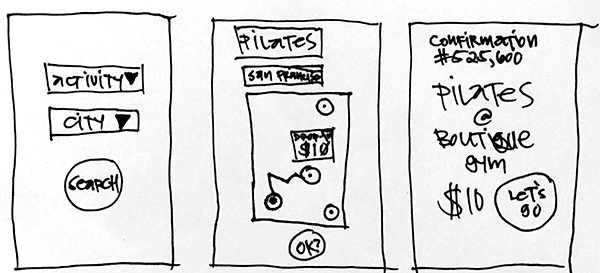 ACTIVITY
CITY
SEARCH
PILATES
SAN FRANCISCO
$10
OK?
CONFIRMATION
#525,600
PILATES
@
BOUTIQUE
GYM
$10
LET'S
GO